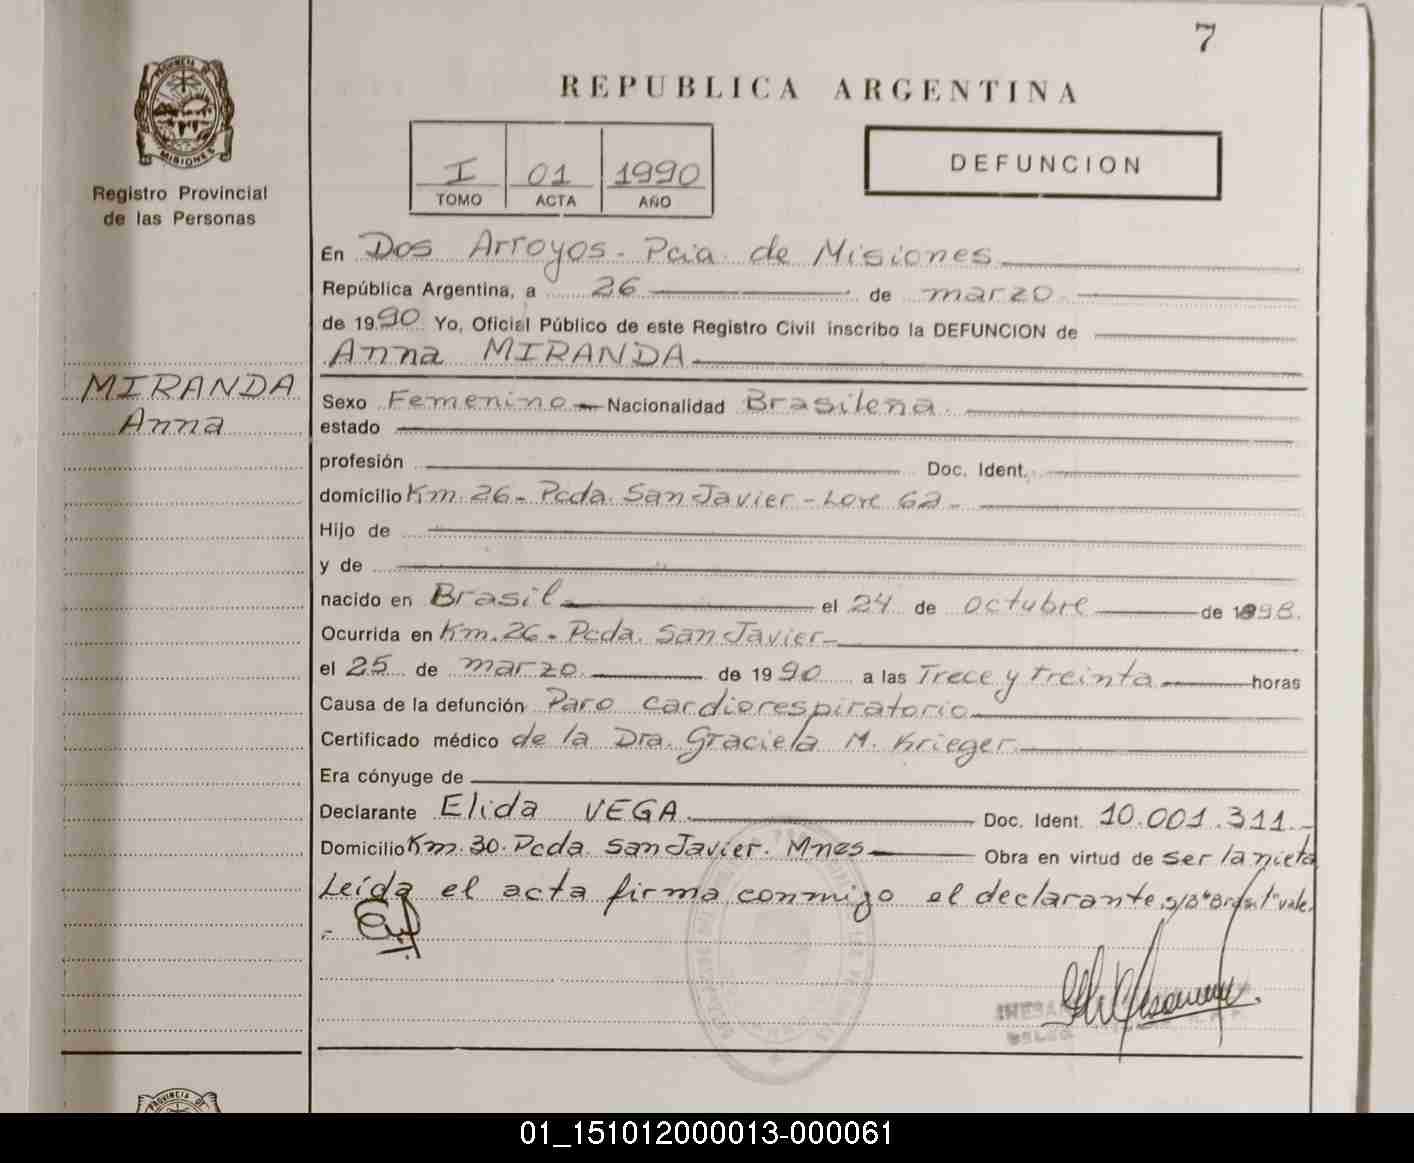 7
PROVINCIA DE
MISIONES
Registro Provincial
de las Personas
REPUBLICA ARGENTINA
I 01 1990
TOMO ACTA AÑO
DEFUNCION
En Dos Arroyos - Pcia. de Misiones
República Argentina, a 26 de marzo
de 1990 Yo, Oficial Público de este Registro Civil inscribo la DEFUNCION de
Anna MIRANDA
MIRANDA
Anna
Sexo Femenino Nacionalidad Brasileña
estado
profesión Doc. Ident.
domicilio Km. 26 - Pcda. San Javier - Lote 62 -
Hijo de
y de
nacido en Brasil el 24 de octubre de 1898.
Ocurrida en Km. 26 - Pcda. San Javier -
el 25 de marzo de 1990 a las Trece y treinta horas
Causa de la defunción Paro cardiorespiratorio
Certificado médico de la Dra. Graciela M. Krieger
Era cónyuge de
Declarante Elida VEGA Doc. Ident. 10.001.311.-
Domicilio Km. 30. Pcda. San Javier. Mnes Obra en virtud de ser la nieta
Leída el acta firma conmigo el declarante, s/b "Brasil" vale.
PROVINCIA DE
01_151012000013-000061